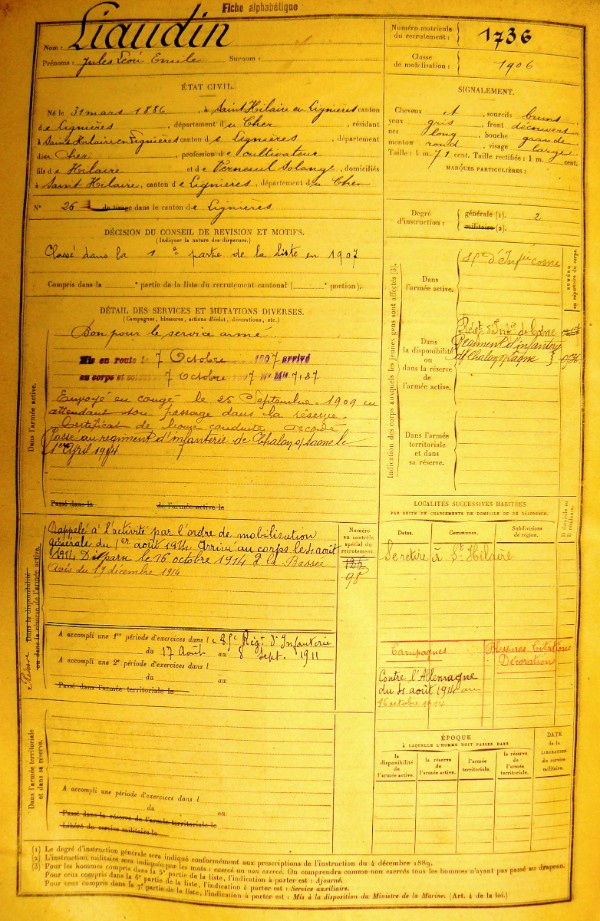 Fiche alphabétique
Liaudin
Nom :
Prénoms : Jules Léon Emile Surnom :
Numéro matricule du recrutement : 1736
Classe de mobilisation : 1906
ÉTAT CIVIL.
Né le 31 mars 1886, à Saint Hilaire en Lignières canton
de Lignières, département du Cher, résidant
à Saint Hilaire en Lignières canton de Lignières, département
du Cher, profession de cultivateur
fils de Hilaire et de Verneuil Solange, domiciliés
à Saint Hilaire, canton de Lignières, département du Cher
N° 26 de tirage dans le canton de Lignières
SIGNALEMENT.
Cheveux et sourcils bruns
yeux gris front découvert
nez long bouche grande
menton rond visage large
Taille : 1 m. 71 cent. Taille rectifiée : 1 m. cent.
MARQUES PARTICULIÈRES :
Degré d'instruction : générale (1). 2
militaire (2).
DÉCISION DU CONSEIL DE REVISION ET MOTIFS.
(Indiquer la nature des dispenses.)
Classé dans la 1e partie de la liste en 1907
Compris dans la partie de la liste du recrutement cantonal ( portion).
DÉTAIL DES SERVICES ET MUTATIONS DIVERSES.
(Campagnes, blessures, actions d'éclat, décorations, etc.)
Bon pour le service armé
Mis en route le 7 Octobre 1907 arrivé
au corps et 7 Octobre
Envoyé en congé le 25 Septembre 1909 en
attendant son passage dans la réserve.
Certificat de bonne conduite accordé
Passé au régiment d'infanterie de Chalon s/Saone le
1er Avril 1914
Passé dans la de l'armée active le
Dans l'armée active.
Indication des corps auxquels les jeunes gens sont affectés (3).
Dans l'armée active.
Dans la disponibilité ou dans la réserve de l'armée active.
Régiment d'infanterie
de Chalon s/Saone
Dans l'armée territoriale et dans sa réserve.
LOCALITÉS SUCCESSIVES HABITÉES
PAR SUITE DE CHANGEMENTS DE DOMICILE OU DE RÉSIDENCE.
Dates. Communes. Subdivisions de région.
Se retire à St Hilaire
Rappelé à l'activité par l'ordre de mobilisation
générale du 1er août 1914. Arrivé au corps le 4 août
1914. Disparu le 16 octobre 1914 à La Bassée
Avis du 17 décembre 1914
Numéro au contrôle spécial du recrutement.
98
Dans la disponibilité ou dans la réserve de l'armée active.
A accompli une 1re période d'exercices dans l Régt. d'Infanterie
du 17 Août au 8 Sept. 1911
A accompli une 2e période d'exercices dans l
du au
Passé dans l'armée territoriale le
Campagnes
Blessures. Citations
Décoration
Contre l'Allemagne
du 4 août 1914 au
16 octobre 1914
ÉPOQUE
À LAQUELLE L'HOMME DOIT PASSER DANS
la disponibilité de l'armée active.
la réserve de l'armée active.
l'armée territoriale.
la réserve de l'armée territoriale.
DATE de la LIBÉRATION du service militaire.
Dans l'armée territoriale et dans sa réserve.
A accompli une période d'exercices dans l
du au
Passé dans la réserve de l'armée territoriale le
Libéré du service militaire le
(1) Le degré d'instruction générale sera indiqué conformément aux prescriptions de l'instruction du 4 décembre 1889.
(2) L'instruction militaire sera indiquée par les mots : exercé ou non exercé. On comprendra comme non exercés tous les hommes n'ayant pas passé au drapeau.
(3) Pour les hommes compris dans la 5e partie de la liste, l'indication à porter est : Service auxiliaire.
Pour ceux compris dans la 6e partie de la liste, l'indication à porter est : Ajourné.
Pour ceux compris dans la 7e partie de la liste, l'indication à porter est : Mis à la disposition du Ministre de la Marine. (Art. 4 de la loi.)